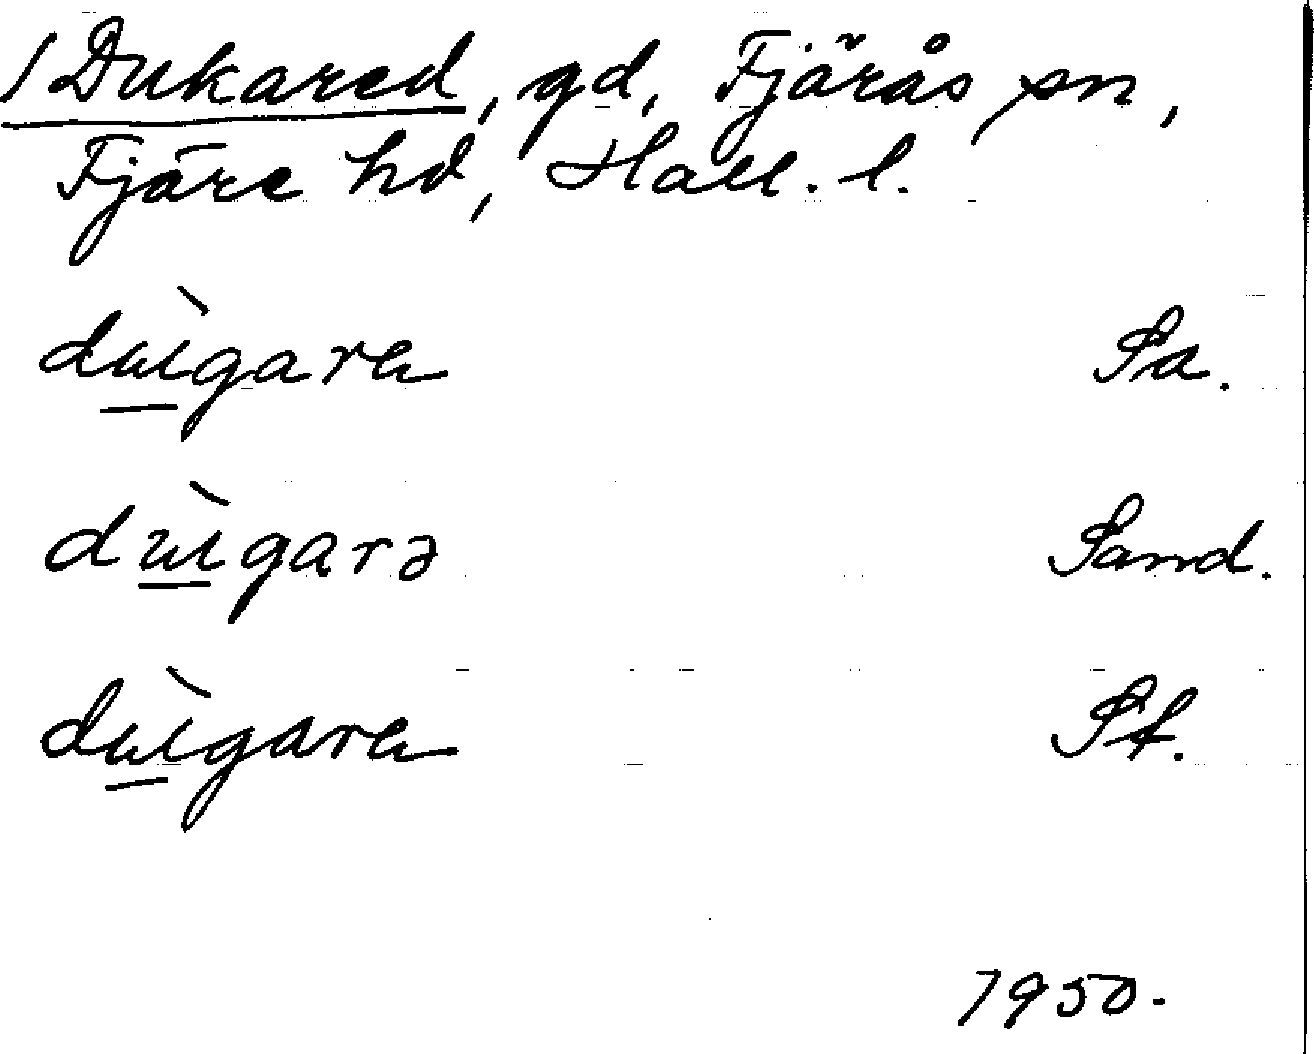 /Dukared, gd, Fjärås sn,
Fjäre hd, Hall. l.
dùgarɐ Sa.
dùgarə Sand.
dùgarɐ St.
1950.